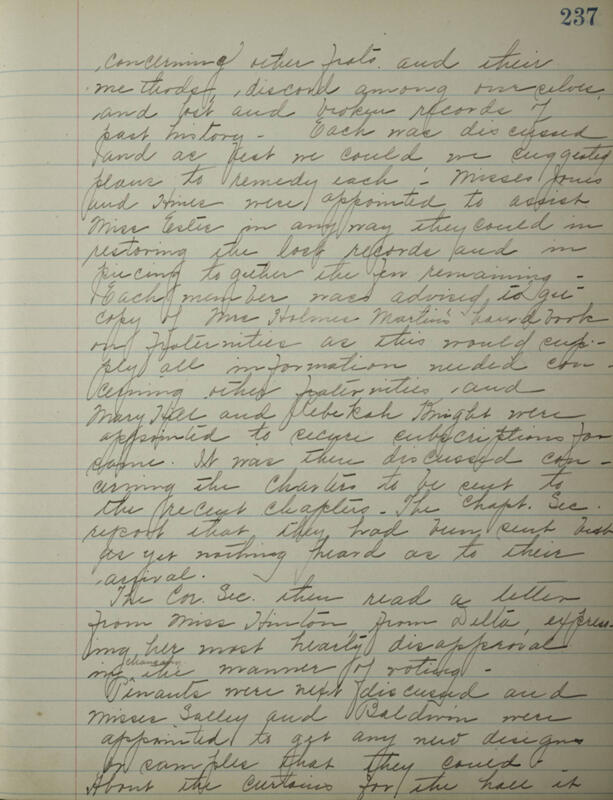 237
concerning other frats. and their
methods, discord among ourselves,
and lost and broken records of
past history - Each was discussed
and as best we could we suggested
plans to remedy each - Misses Jones
and Hines were appointed to assist
Miss Estes in any way they could in
restoring the lost records and in
piecing together the few remaining -
Each member was advised to get
copy of Mrs Holmes Martin's hand book
on fraternities as this would sup-
ply all information needed con-
cerning other fraternities, and
Mary and Rebekah Knight were
appointed to secure subscriptions for
same. It was then discussed con-
cerning the Charters to be sent to
the recent chapters - The Chapt. Sec.
report that they had been sent but
as yet nothing heard as to their
arrival.
The Cor. Sec. then read a letter
from Miss Hinton from Delta, express-
ing her most hearty disapproval
in changing the manner of voting -
Penants were next discussed and
Misses Salley and Baldwin were
appointed to get any new designs
or samples that they could -
About the curtains for the hall it